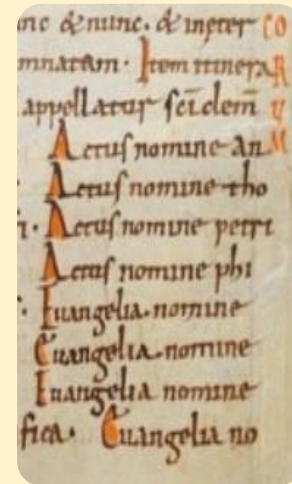 nc & nunc. & in&er CO
mnatam. Item itinera R
appellatur sci clem U
Actus nomine an M
Actus nomine tho
Actus nomine petri
Actus nomine phi
Euangelia. nomine
Euangelia. nomine
Euangelia nomine
fica. Euangelia no